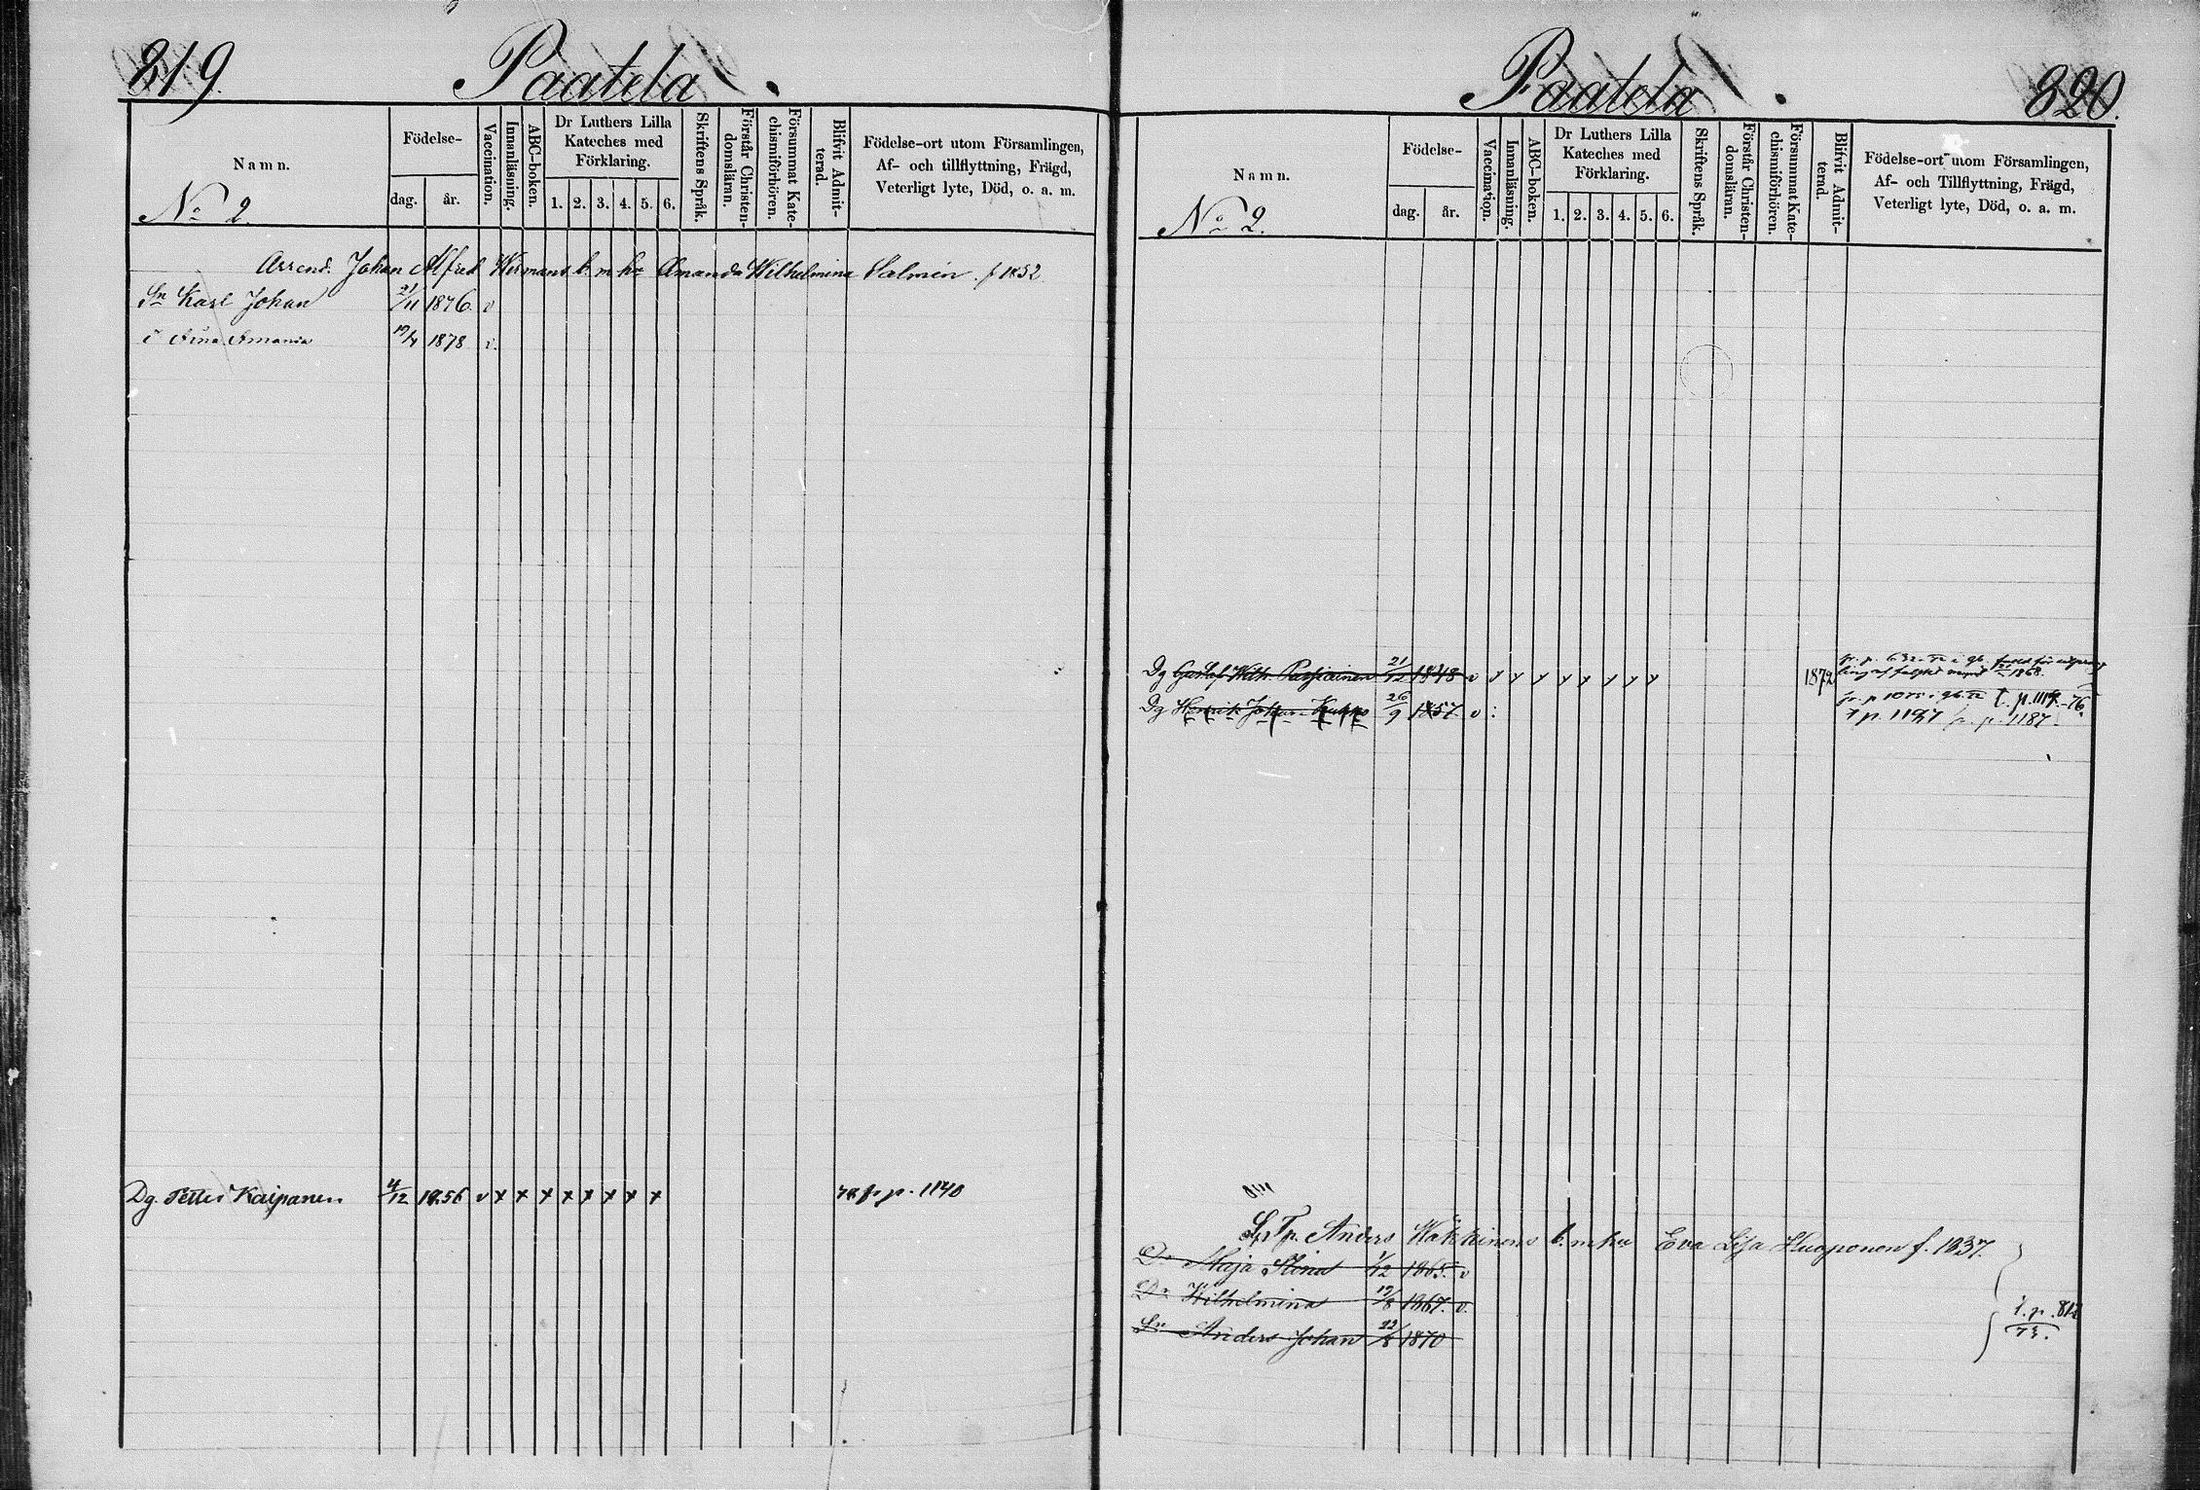 819.
Paatela.
Namn.
No 2.
Födelse-
dag.
år.
Vaccination.
Innanläsning.
ABC-boken.
Dr Luthers Lilla
Kateches med
Förklaring.
1. 2. 3. 4. 5. 6.
Skriftens Språk.
Förstår Christen-
domsläran.
Försummat Kate-
chismiförhören.
Blifvit Admit-
terad.
Födelse-ort utom Församlingen,
Af- och tillflyttning, Frägd,
Veterligt lyte, Död, o. a. m.
Arrend. Johan Alfred Wirmans b. m. hu Amanda Wilhelmina Salmén. f 1852
Sn Karl Johan 21/11 1876. v
Amania 19/4 1878 v.
Dg. Petter Kaipanen 4/12 1856 v x x x x x x x x p. 1140
820.
Paatela.
Namn.
No 2.
Födelse-
dag.
år.
Vaccination.
Innanläsning.
ABC-boken.
Dr Luthers Lilla
Kateches med
Förklaring.
1. 2. 3. 4. 5. 6.
Skriftens Språk.
Förstår Christen-
domsläran.
Försummat Kate-
chismiförhören.
Blifvit Admit-
terad.
Födelse-ort utom Församlingen,
Af- och Tillflyttning, Frägd,
Veterligt lyte, Död, o. a. m.
Dg Gustaf Wilh. 21/12 1848 v 1872
1868.
Dg Henrik Johan 26/9 1857. v
p. 1197 p. 1187
Anders b. m hu Eva Lisa Huoponen f. 1837.
Dr Maja Stina 1/12 1865. v
Dr Wilhelmina 19/8 1867. v.
Sn Anders Johan 22/8 1870
t. p. 812
73.